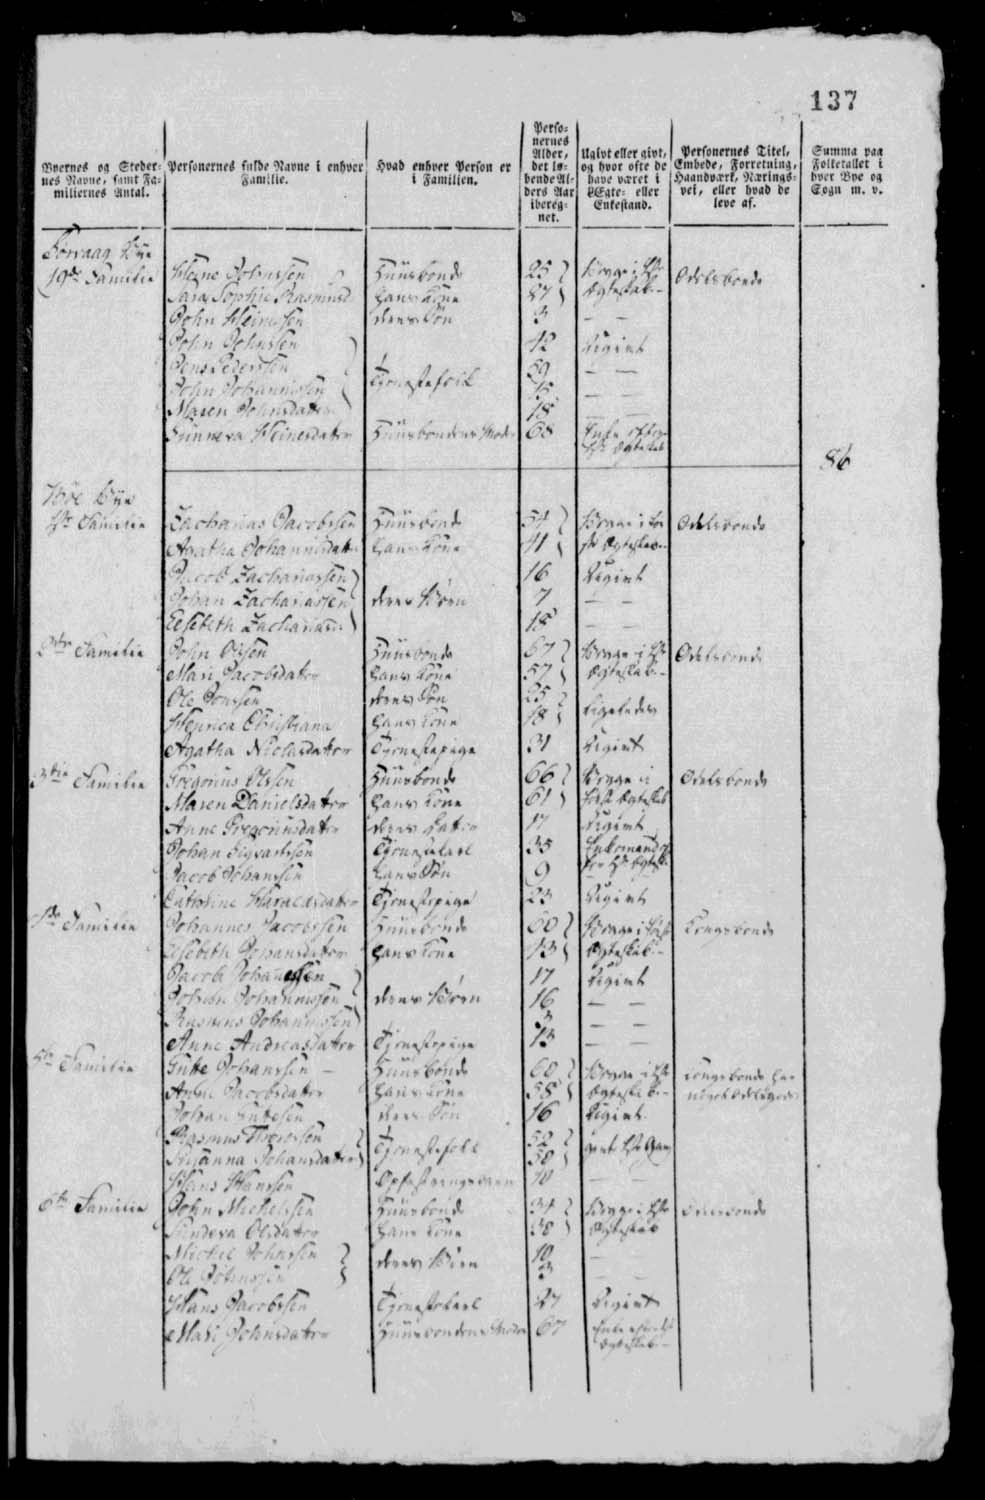 137
Byernes og Steder-
nes Navne, samt Fa-
miliernes Antal.
Personernes fulde Navne i enhver
Familie.
Hvad enhver Person er
i Familien.
Perso-
nernes
Alder,
det lø-
bende Al-
ders Aar
ibereg-
net.
Ugivt eller givt,
og hvor ofte de
have været i
Ægte- eller
Enkestand.
Personernes Titel,
Embede, Forretning,
Haandværk, Nærings-
vei, eller hvad de
leve af.
Summa paa
Folketallet i
hver Bye og
Sogn m. v.
Bye
19de Familie Heine Johnssen Huusbonde 25 Begge i 1ste Odelsbonde
Sara Sophie Rasmusd. Hans Kone 27 Ægteskab
John Heinessen deres Søn 3 — —
John Johnssen 42 Ugivt
Jens Pederssen 59 — —
John Johannissen Tjenestefolk 15 — —
Maren Johnsdatter 18 — —
Sunneva Heinesdatter Huusbondens Moder 68 Enke efter
1ste Ægteskab
86
Bye
1ste Familie Zacharias Jacobssen Huusbonde 54 Begge i før Odelsbonde
Agatha Johannisdatter Hans Kone 41 ste Ægteskab
Jacob Zachariassen 16 Ugivt
Johan Zachariassen deres Børn 7 — —
Elsebeth Zachariasd. 18 — —
2den Familie John Olssen Huusbonde 67 Begge i 1ste Odelsbonde
Mari Jacobsdatter Hans Kone 57 Ægteskab
Ole Jonssen deres Søn 25
Henrica Christiana Hans Kone 18 ligeledes
Agatha Niclasdatter Tjenestepige 31 Ugivt
3die Familie Gregorius Olssen Huusbonde 66 Begge i Odelsbonde
Maren Danielsdatter Hans Kone 61 første Ægteskab
Anne Gregoriusdatter deres Datter 17 Ugivt
Johan Sigvartssen Tjenestekarl 35 Enkemand
1ste Ægtesk.
Jacob Johanssen Hans Søn 9
Cathrine Tjenestepige 23 Ugivt
4de Familie Johannes Jacobssen Huusbonde 60 Begge i første Kongsbonde
Elsebeth Johansdatter Hans Kone 43 Ægteskab
Jacob Johannessen 17 Ugivt
Johan Johannissen deres Børn 16 — —
Rasmus Johannissen 3 — —
Anne Andreasdatter Tjenestepige 13 — —
5te Familie Gutte Johanssen — Huusbonde 60 Begge i 1ste Kongsbonde har
Anne Jacobsdatter Hans Kone 58 Ægteskab noget Odelsgods
Johan Guttesen deres Søn 16 Ugivt
Rasmus 52
Susanna Johansdatter Tjenestefolk 50 givt 1ste Gang
Hans Hanssen 10 — —
6te Familie John Michelssen Huusbonde 34 Begge i 1ste Odelsbonde
Sundeva Olsdatter Hans Kone 38 Ægteskab
Michel Johnssen 10 —
Ole Johnssen deres Børn 3 — —
Hans Jacobssen Tjenestekarl 27 Ugivt
Mari Johnsdatter Huusbondens Moder 67 Enke efter 1ste
Ægteskab